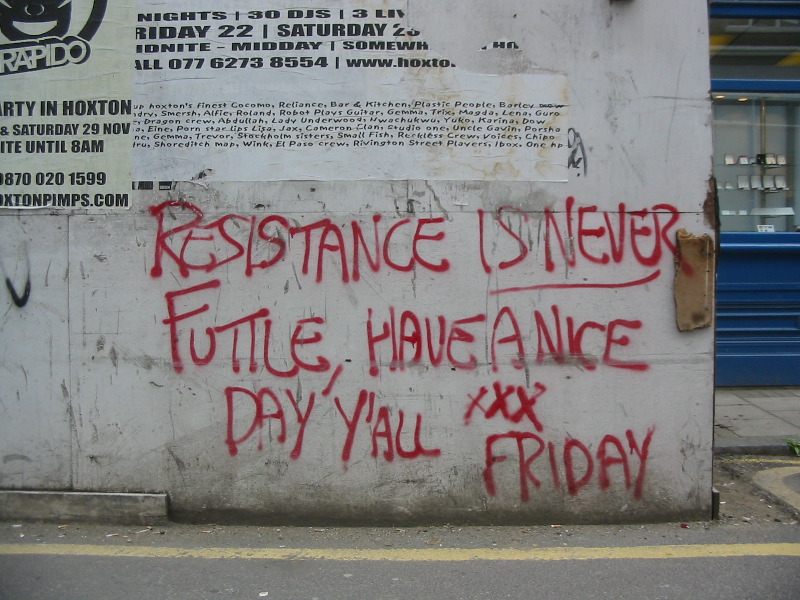 RAPIDO
PARTY IN HOXTON
& SATURDAY 29 NOV
UNTIL 8AM
0870 020 1599
HOXTONPIMPS.COM
NIGHTS | 30 DJS | 3
FRIDAY 22 | SATURDAY 23
MIDNITE - MIDDAY |
CALL 077 6273 8554 | www.hoxto
up hoxton's finest Cocomo, Reliance, Bar & Kitchen, Plastic People, Barley
Smersh, Alfie, Roland, Robot Plays Guitar, Gemma, Trix, Magda, Lena, Guro
Dragon crew, Abdullah, Lady Underwood, Nwachukwu, Yuko, Karina, Dow
Eine, Porn star lips Lisa, Jax, Cameron Clan, Studio one, Uncle Gavin, Porsha
Gemma, Trevor, Stockholm sisters, Small Fish, Reckless Crew, Voices, Chipo
Shoreditch map, Wink, El Paso crew, Rivington Street Players, Ibox, One hp
RESISTANCE IS NEVER
FUTTLE, HAVE A NICE
DAY Y'ALL XXX
FRIDAY